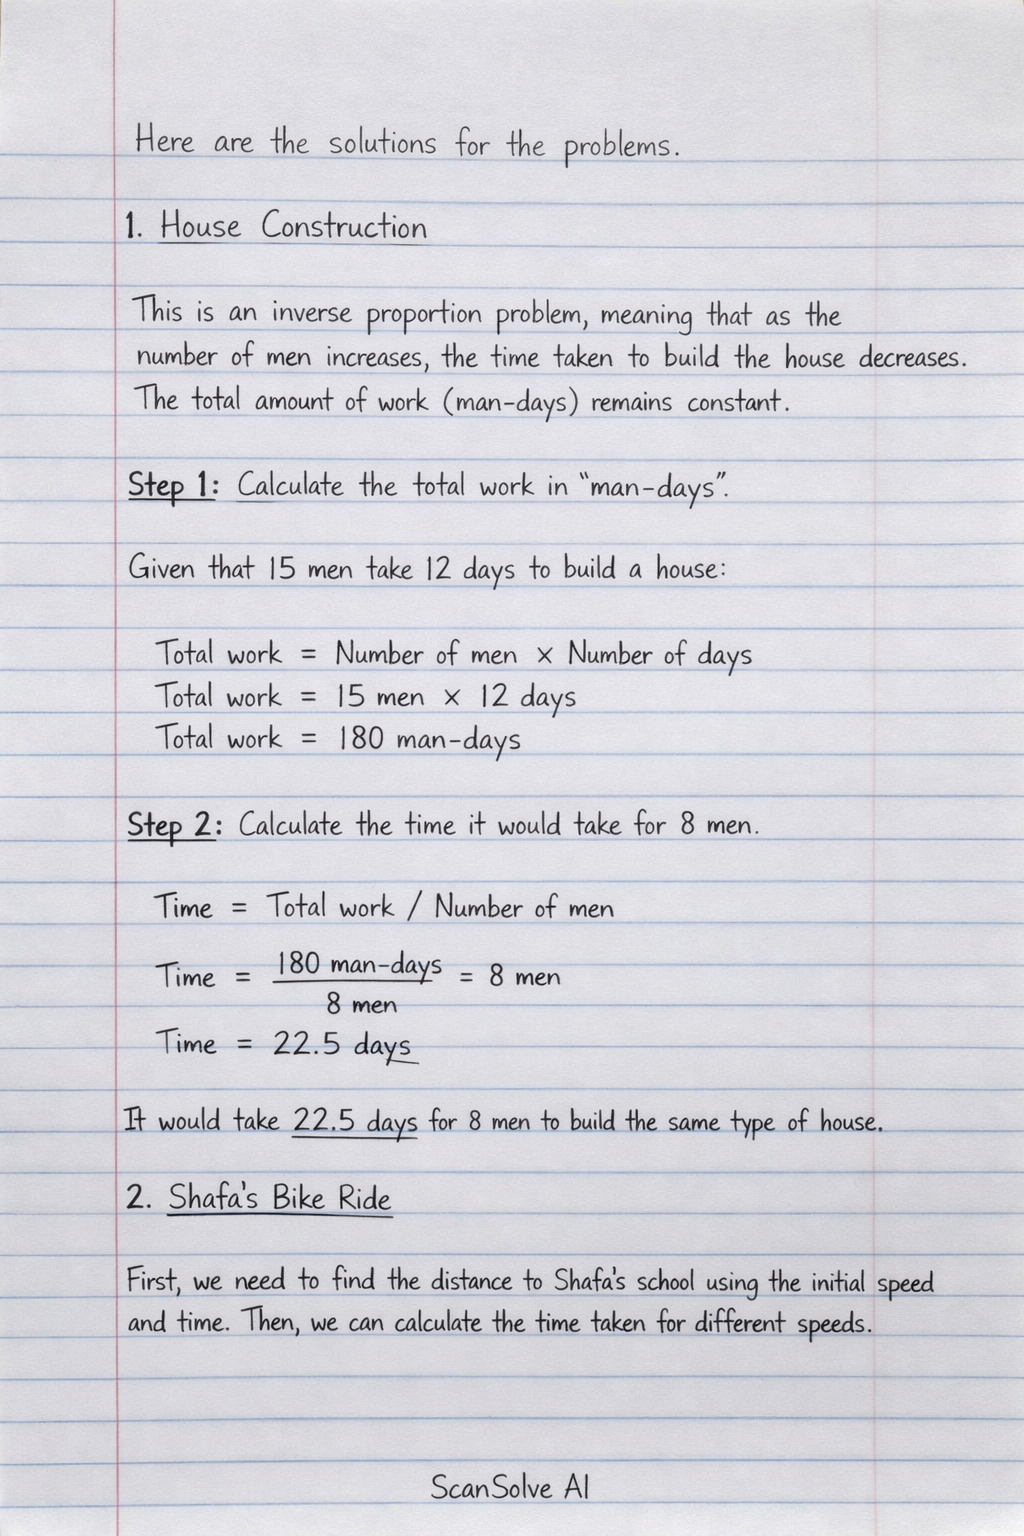 Here are the solutions for the problems.
1. House Construction
This is an inverse proportion problem, meaning that as the
number of men increases, the time taken to build the house decreases.
The total amount of work (man-days) remains constant.
Step 1: Calculate the total work in "man-days".
Given that 15 men take 12 days to build a house:
Total work = Number of men × Number of days
Total work = 15 men × 12 days
Total work = 180 man-days
Step 2: Calculate the time it would take for 8 men.
Time = Total work / Number of men
Time = 180 man-days / 8 men = 8 men
Time = 22.5 days
It would take 22.5 days for 8 men to build the same type of house.
2. Shafa's Bike Ride
First, we need to find the distance to Shafa's school using the initial speed
and time. Then, we can calculate the time taken for different speeds.
ScanSolve AI